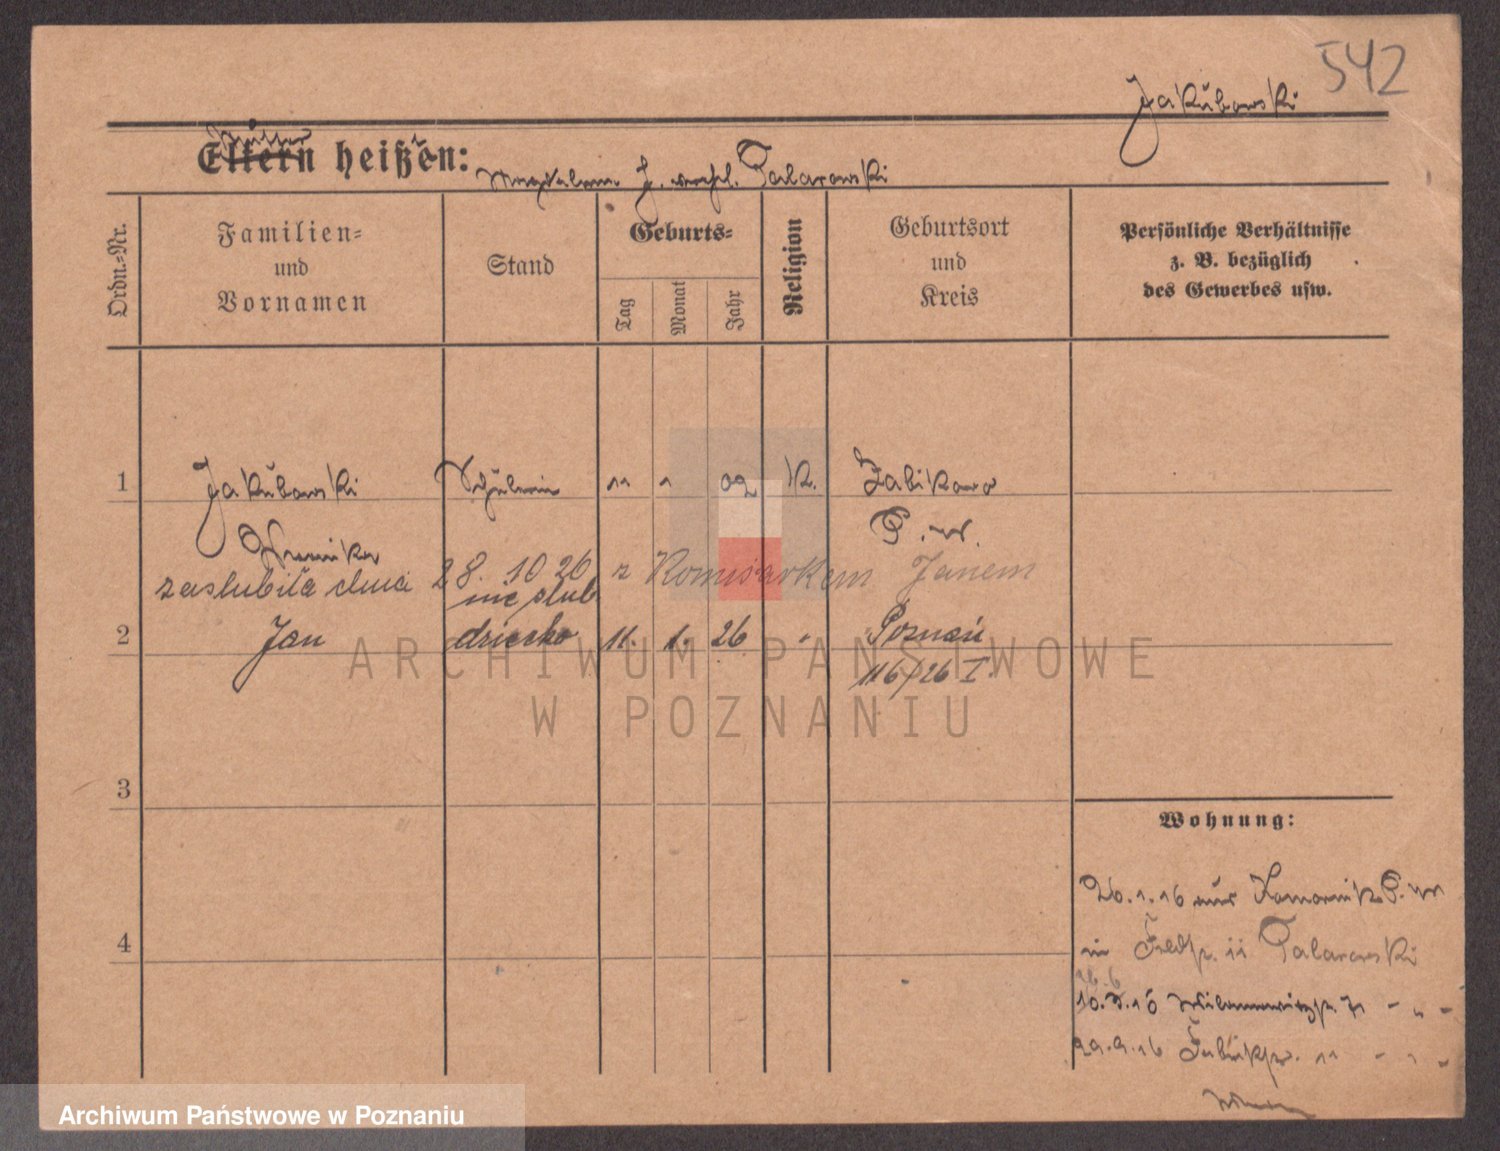 542
Jakubowski
Mutter
Eltern heißen:
Magdalena J. verehl. Talarowski
Ordn.-Nr.
Familien-
und
Vornamen
Stand
Geburts-
Tag
Monat
Jahr
Religion
Geburtsort
und
Kreis
Persönliche Verhältnisse
z. B. bezüglich
des Gewerbes usw.
1 Jakubowski Schülerin 11 1 09 K. Żabikowo
P. W.
zaslubiła dnia 28. 10 26 z Komisarkem Janem
nie slub
2 Jan dziecko 11. 1. 26 " Poznań
116/26 I.
3
Wohnung:
26.1.16 aus P. W
4
in Talarowski
10. .16 - " -
29.9.16 11 - " -
ARCHIWUM PAŃSTWOWE
W POZNANIU
Archiwum Państwowe w Poznaniu